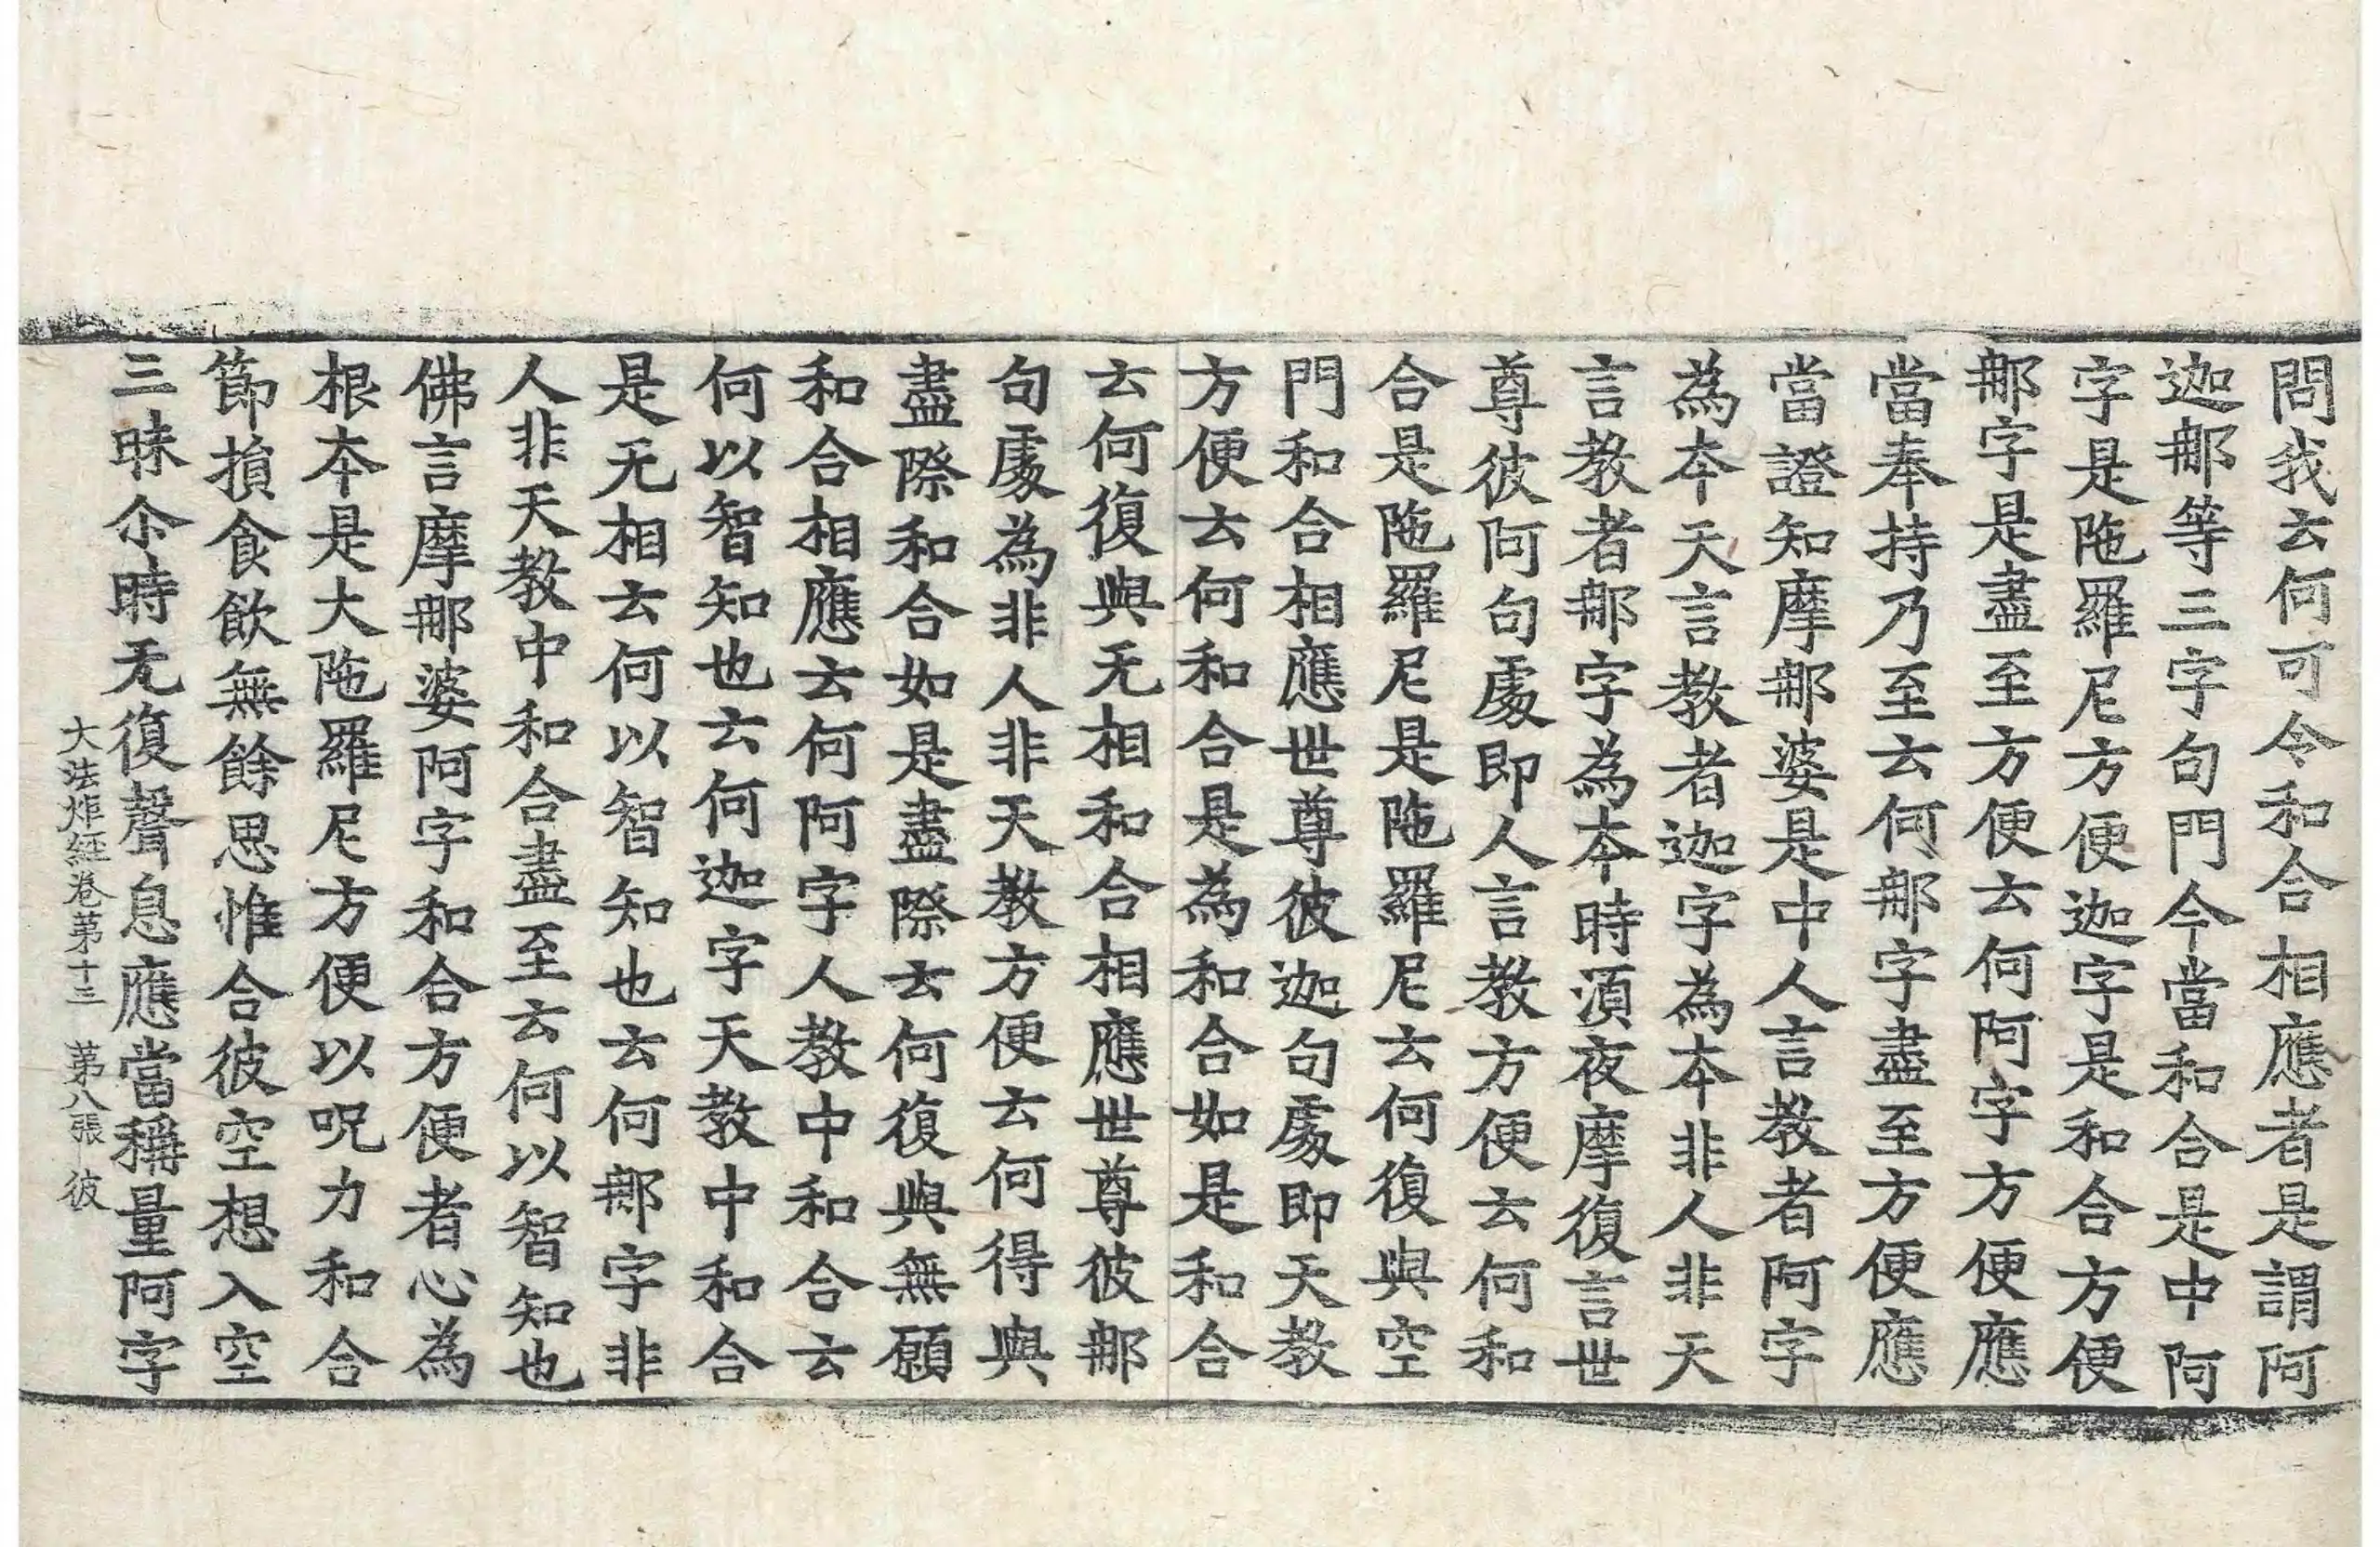 問我云何可令和合相應者是謂阿
迦那等三字句門今當和合是中阿
字是陁羅尼方便迦字是和合方便
那字是盡至方便云何阿字方便應
當奉持乃至云何那字盡至方便應
當證知摩那婆是中人言教者阿字
為本天言教者迦字為本非人非天
言教者那字為本時湏夜摩復言世
尊彼阿句處即人言教方便云何和
合是陁羅尼是陁羅尼云何復與空
門和合相應世尊彼迦句處即天教
方便云何和合是為和合如是和合
云何復與无相和合相應世尊彼那
句處為非人非天教方便云何得與
盡際和合如是盡際云何復與無願
和合相應云何阿字人教中和合云
何以智知也云何迦字天教中和合
是无相云何以智知也云何那字非
人非天教中和合盡至云何以智知也
佛言摩那婆阿字和合方便者心為
根本是大陁羅尼方便以呪力和合
節損食飲無餘思惟合彼空想入空
三昧尒時无復聲息應當稱量阿字
大法炬経卷苐十三 苐八張 彼